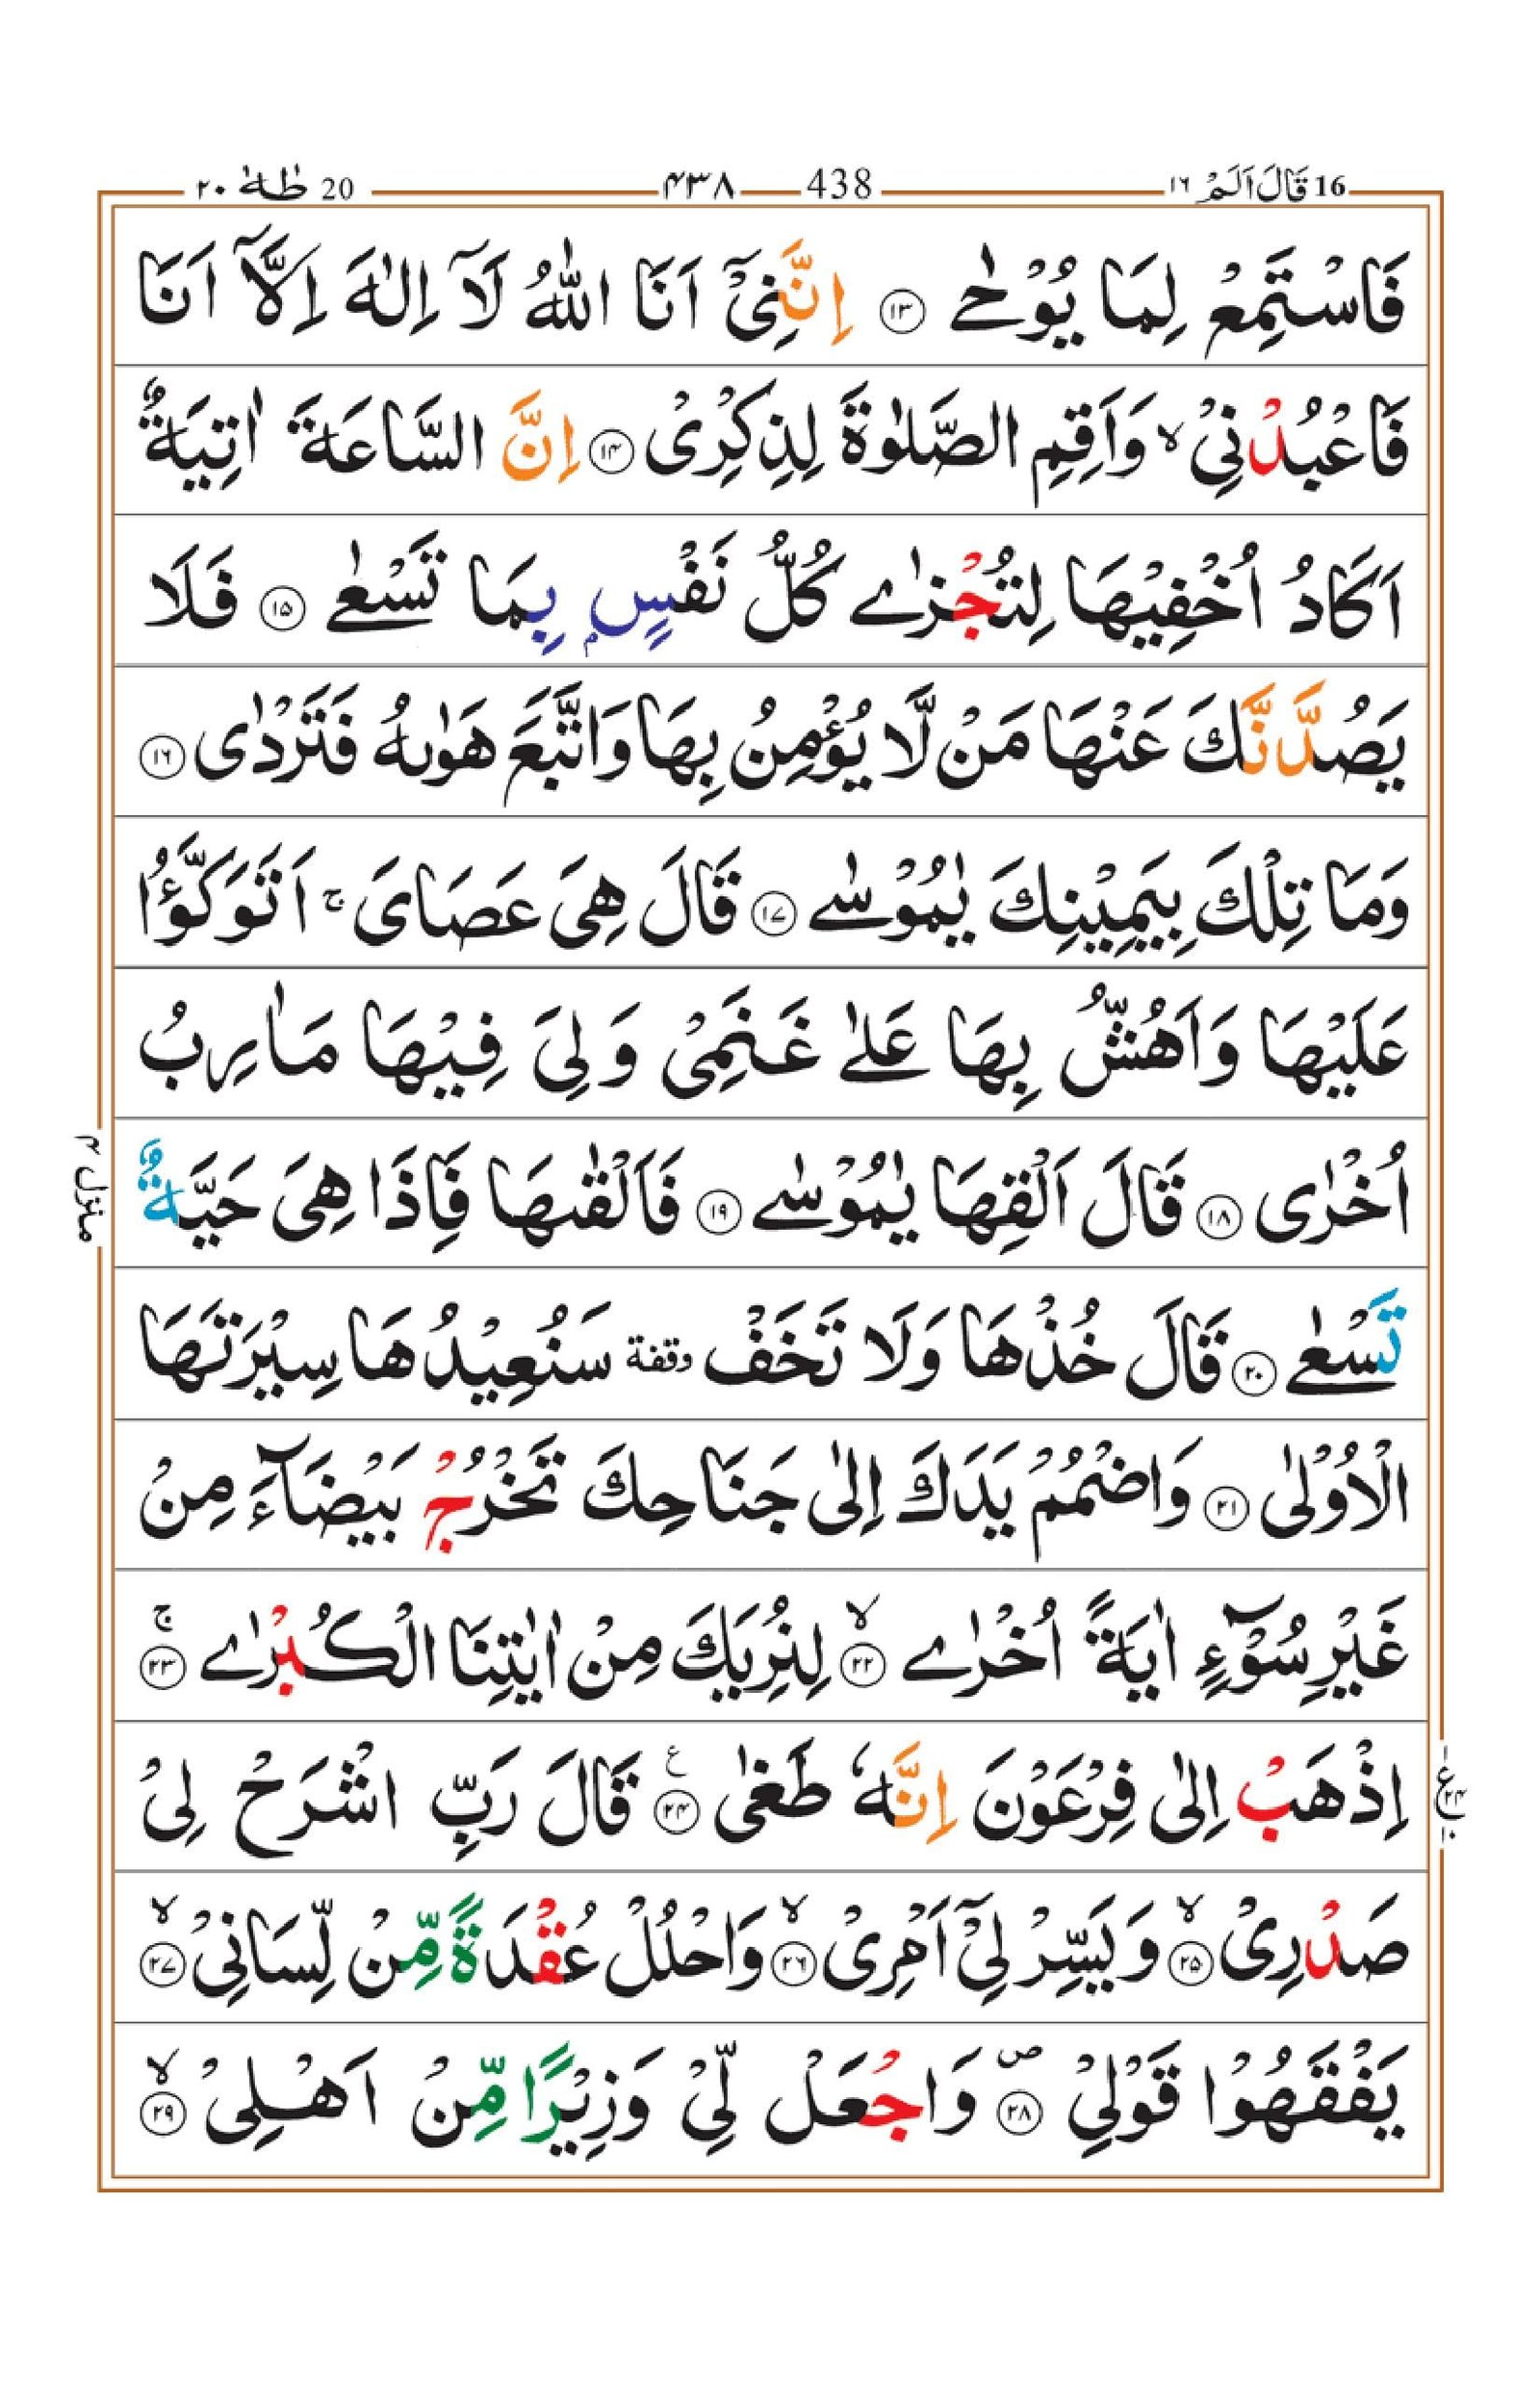 16 قَالَ اَلَمْ ١٦ 438 ۴۳۸ 20 طٰهٰ ٢٠
فَاسْتَمِعْ لِمَا يُوْحٰى ﴿۱۳﴾ اِنَّنِىْۤ اَنَا اللّٰهُ لَاۤ اِلٰهَ اِلَّاۤ اَنَا
فَاعْبُدْنِىْ ۙ وَاَقِمِ الصَّلٰوةَ لِذِكْرِىْ ﴿۱۴﴾ اِنَّ السَّاعَةَ اٰتِيَةٌ
اَكَادُ اُخْفِيْهَا لِتُجْزٰى كُلُّ نَفْسٍۭ بِمَا تَسْعٰى ﴿۱۵﴾ فَلَا
يَصُدَّنَّكَ عَنْهَا مَنْ لَّا يُؤْمِنُ بِهَا وَاتَّبَعَ هَوٰٮهُ فَتَرْدٰى ﴿۱۶﴾
وَمَا تِلْكَ بِيَمِيْنِكَ يٰمُوْسٰى ﴿۱۷﴾ قَالَ هِىَ عَصَاىَ ۚ اَتَوَكَّؤُا
عَلَيْهَا وَاَهُشُّ بِهَا عَلٰى غَنَمِىْ وَلِىَ فِيْهَا مَاٰرِبُ
اُخْرٰى ﴿۱۸﴾ قَالَ اَلْقِهَا يٰمُوْسٰى ﴿۱۹﴾ فَاَلْقٰٮهَا فَاِذَا هِىَ حَيَّةٌ
منزل ۴
تَسْعٰى ﴿۲۰﴾ قَالَ خُذْهَا وَلَا تَخَفْ وقفة سَنُعِيْدُهَا سِيْرَتَهَا
الْاُوْلٰى ﴿۲۱﴾ وَاضْمُمْ يَدَكَ اِلٰى جَنَاحِكَ تَخْرُجْ بَيْضَآءَ مِنْ
غَيْرِ سُوْٓءٍ اٰيَةً اُخْرٰى ۙ﴿۲۲﴾ لِنُرِيَكَ مِنْ اٰيٰتِنَا الْكُبْرٰى ۚ﴿۲۳﴾
اِذْهَبْ اِلٰى فِرْعَوْنَ اِنَّهٗ طَغٰى ﴿۲۴﴾ ع قَالَ رَبِّ اشْرَحْ لِىْ
صَدْرِىْ ۙ﴿۲۵﴾ وَيَسِّرْ لِىْۤ اَمْرِىْ ۙ﴿۲۶﴾ وَاحْلُلْ عُقْدَةً مِّنْ لِّسَانِىْ ۙ﴿۲۷﴾
يَفْقَهُوْا قَوْلِىْ ۖ﴿۲۸﴾ وَاجْعَلْ لِّىْ وَزِيْرًا مِّنْ اَهْلِىْ ۙ﴿۲۹﴾